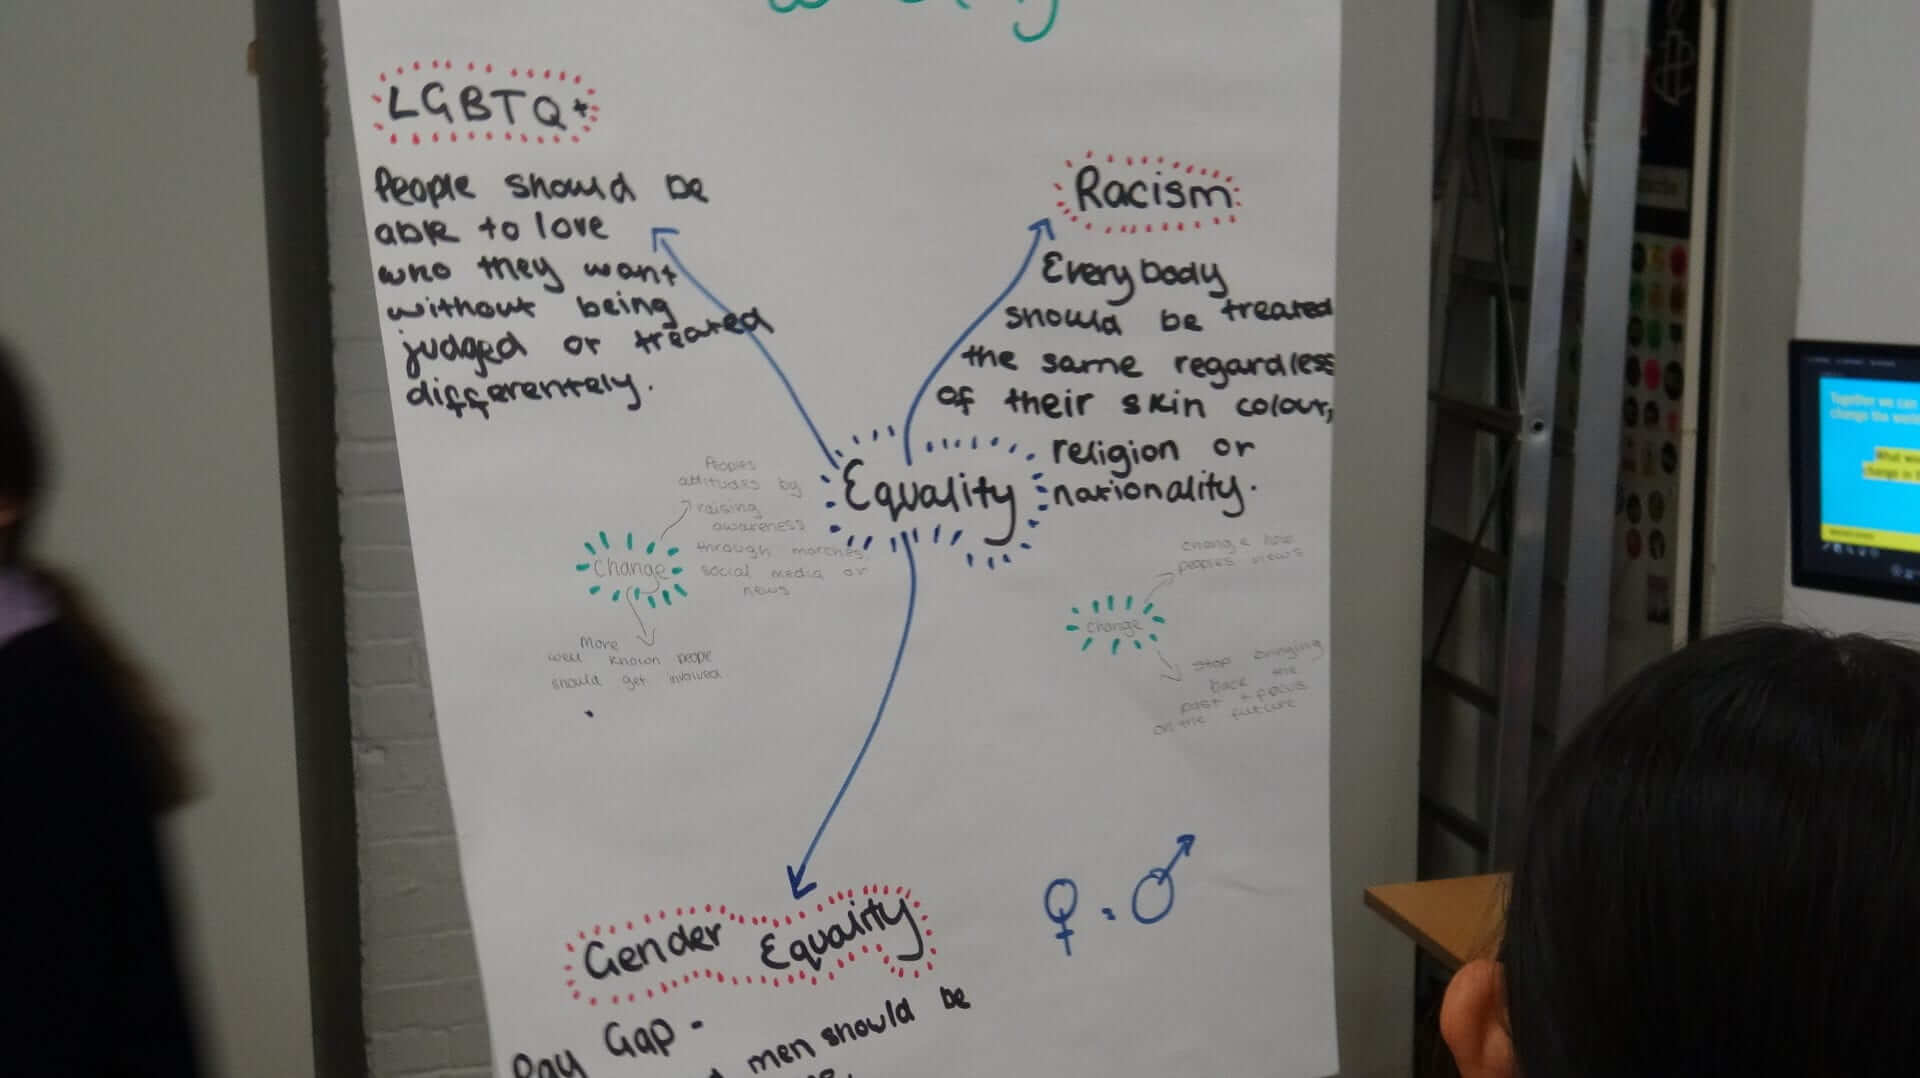 LGBTQ+
People should be
able to love
who they want
without being
judged or treated
differentely.
Racism
Everybody
should be treated
the same regardless
of their skin colour,
religion or
nationality.
Equality
Peoples
attitudes by
raising
awareness
through marches,
social media or
news
Change
More
well known people
should get involved
change how
peoples views
change
stop bringing
back the
past + focus
on the future
Gender Equality
♀ = ♂
Pay Gap -
men should be
Together we can
change the
What
change in